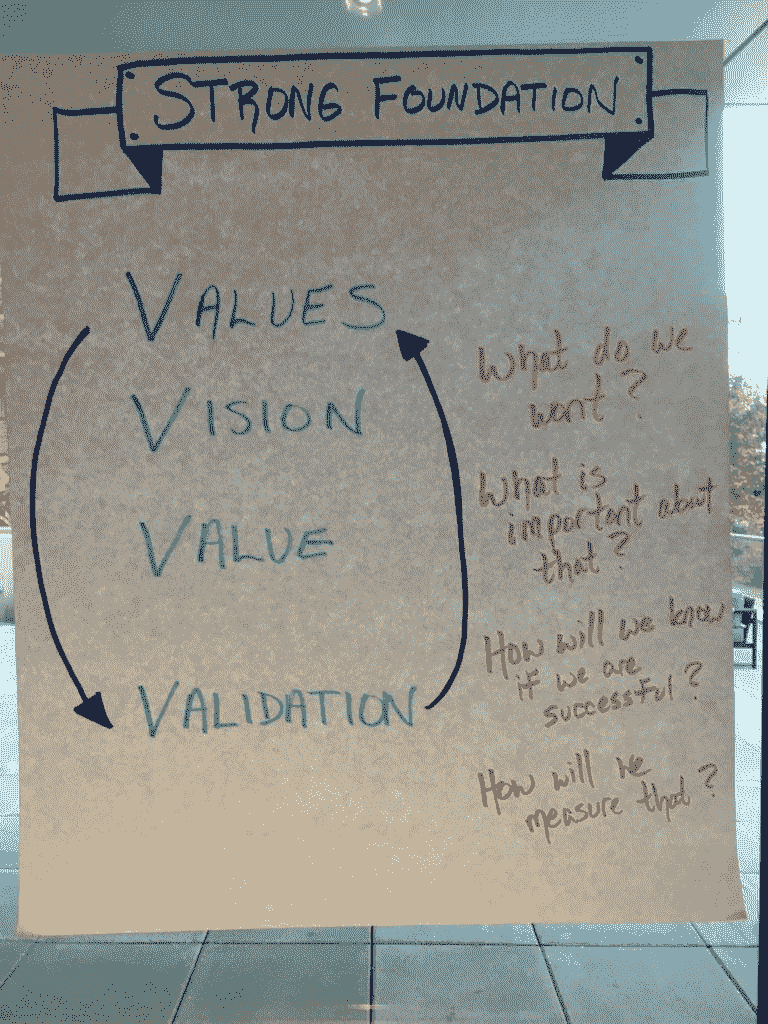 STRONG FOUNDATION
VALUES
VISION
VALUE
VALIDATION
What do we
want?
What is
important about
that?
How will we know
if we are
successful?
How will we
measure that?